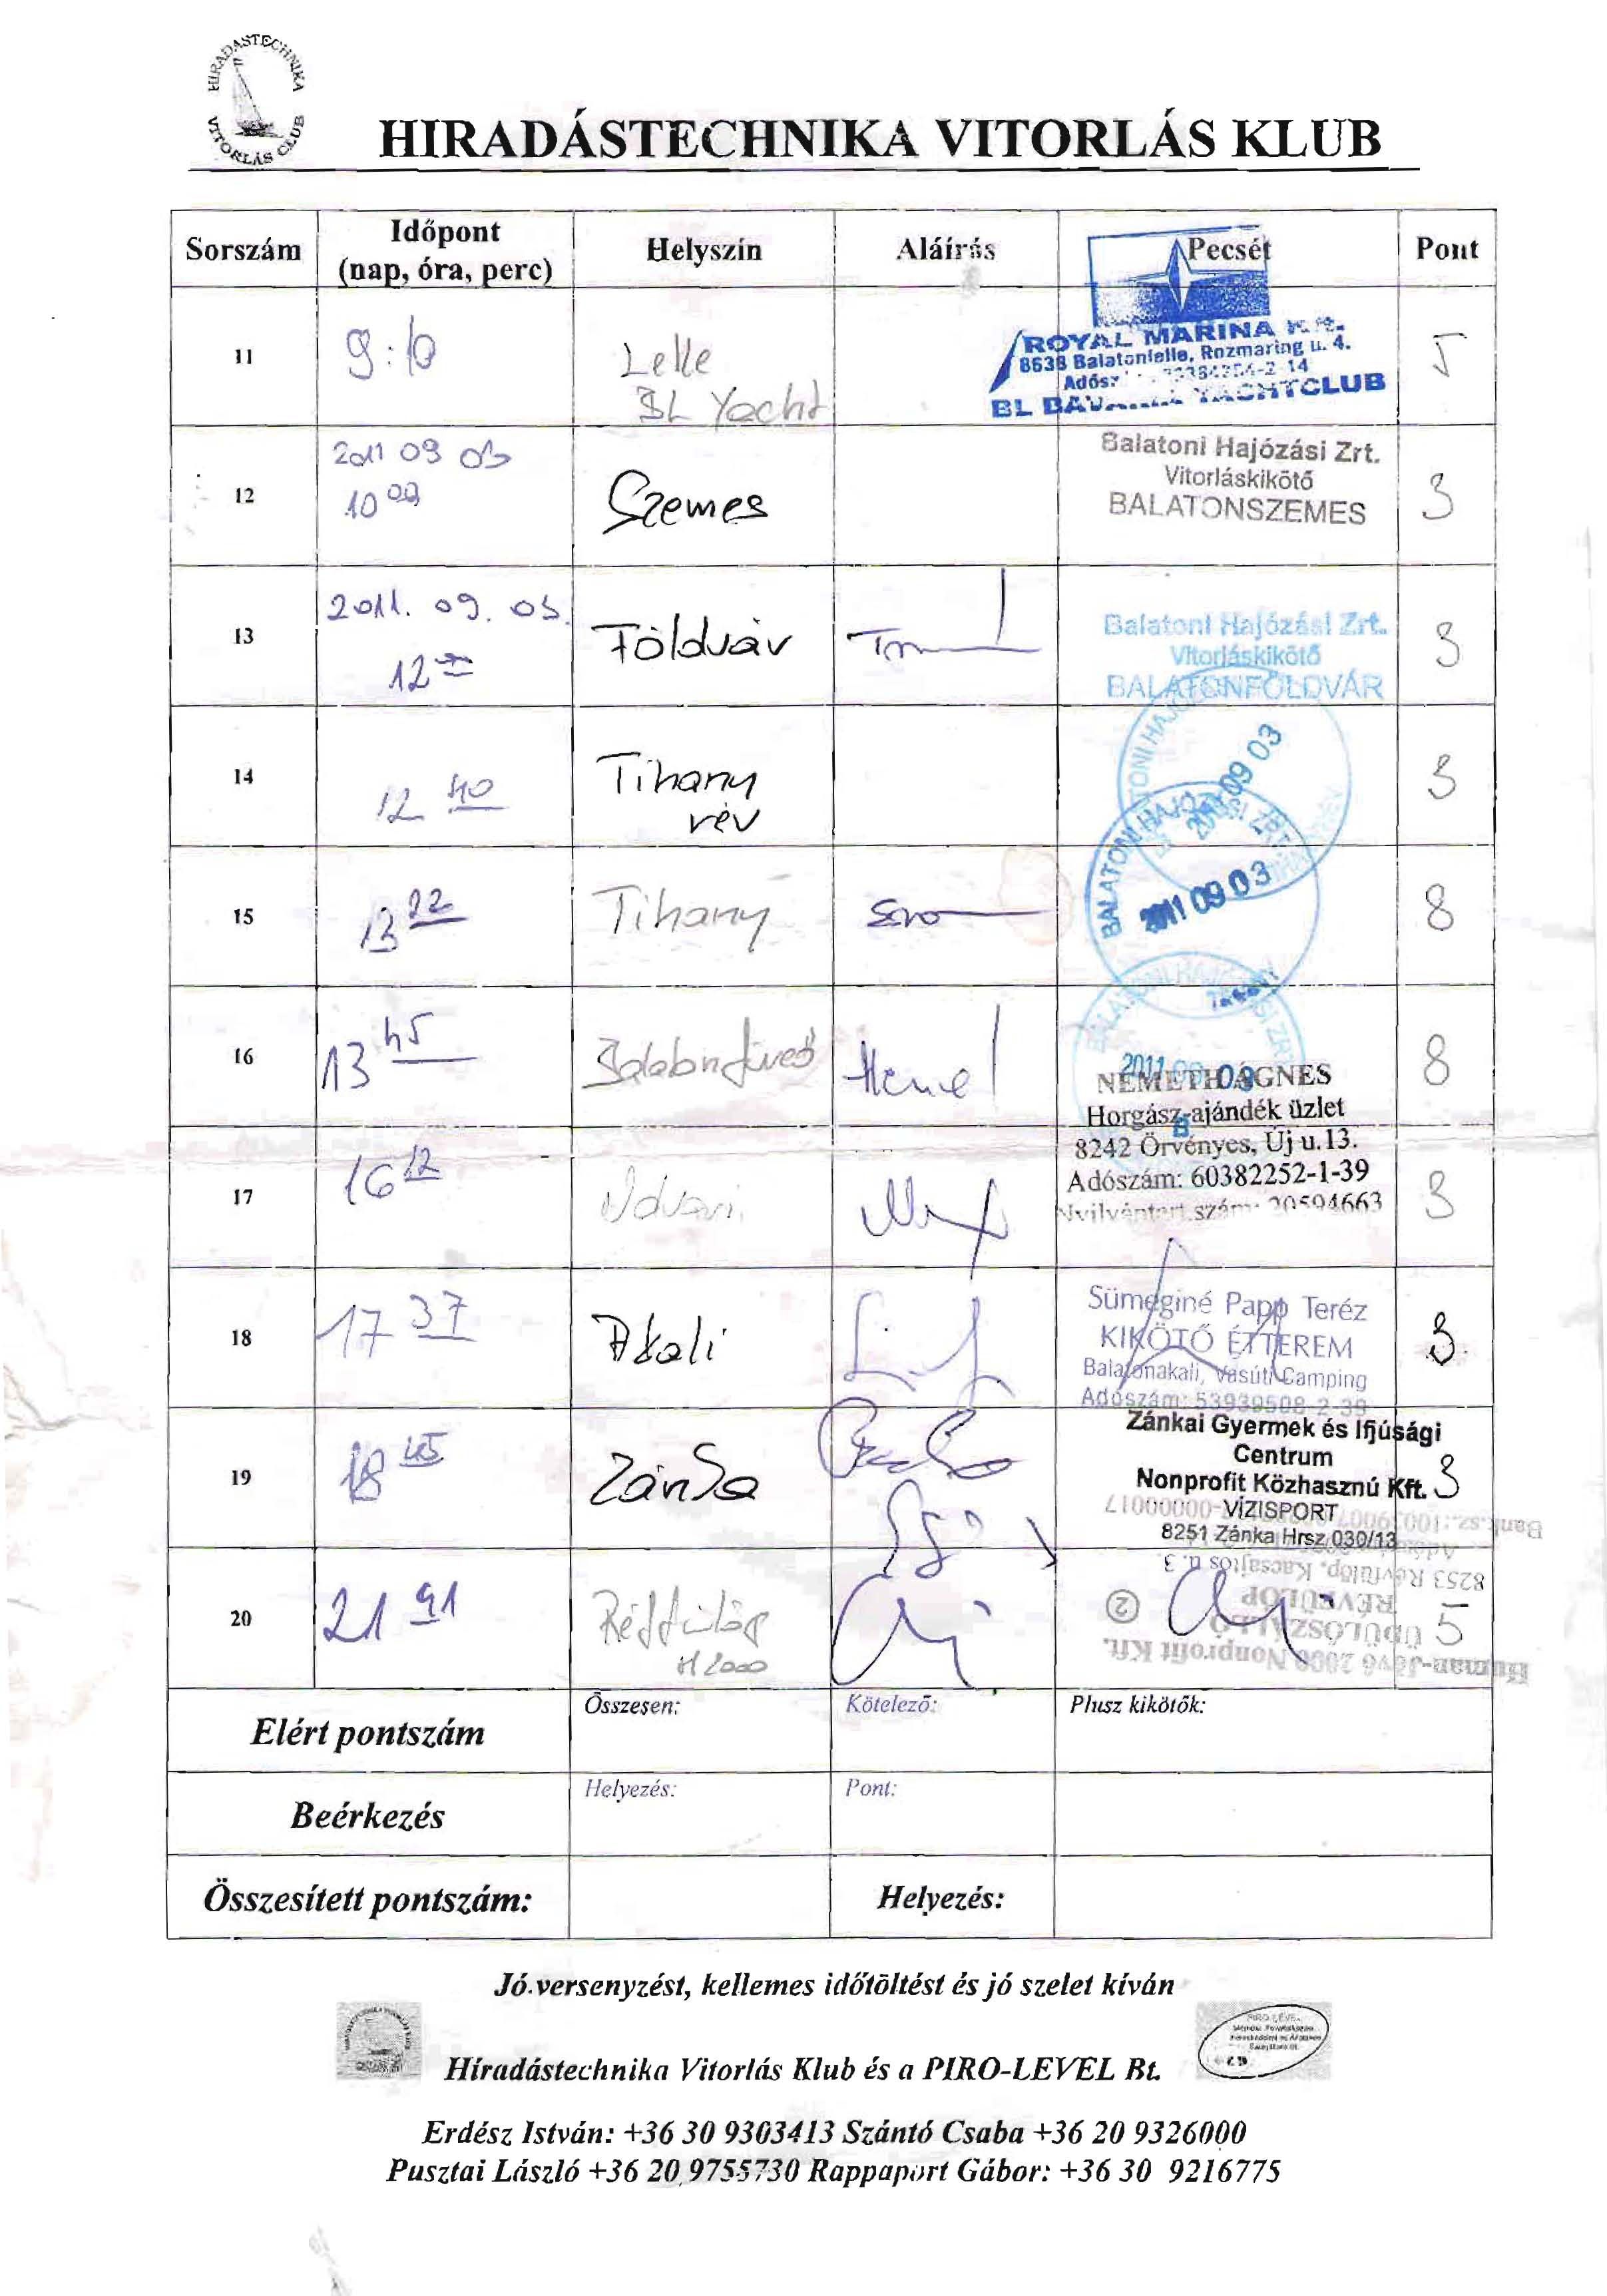 HIRADÁSTECHNIKA
VITORLÁS CLUB
HIRADÁSTECHNIKA VITORLÁS KLUB
Sorszám Időpont (nap, óra, perc) Helyszín Aláírás Pecsét Pont
11 Lelle BL Yacht 5
ROYAL MARINA Kft.
8638 Balatonlelle, Rozmaring u. 4.
BL BAVARIA YACHTCLUB
12 2011 09 03 10 00 Szemes 3
Balatoni Hajózási Zrt.
Vitorláskikötő
BALATONSZEMES
13 2011. 09. 03. 12 Földvár 3
Balatoni Hajózási Zrt.
Vitorláskikötő
BALATONFÖLDVÁR
14 12 40 Tihany rév 3
2011 09 03
15 13 22 Tihany 8
BALATONI HAJÓZÁSI ZRT
2011 09 03
16 13 45 Balatonfüred 8
BALATONI HAJÓZÁSI ZRT
2011 09 03
17 16 12 Udvari 3
NÉMETH ÁGNES
Horgász-ajándék üzlet
8242 Örvényes, Új u.13.
Adószám: 60382252-1-39
Nyilvántart.szám: 20594663
18 17 37 Akali 3.
Sümeginé Papp Teréz
KIKÖTŐ ÉTTEREM
Balatonakali, Vasúti Camping
Adószám: 53939508-2-39
19 18 45 Zánka 3
Zánkai Gyermek és Ifjúsági
Centrum
Nonprofit Közhasznú Kft.
VÍZISPORT
8251 Zánka Hrsz 030/13
20 21 Révfülöp H 2000 5
Human-Jövő 2000 Nonprofit Kft.
ÜDÜLŐSZÁLLÓ
RÉVFÜLÖP
8253 Révfülöp, Kacsajtos u. 3
2
Elért pontszám Összesen: Kötelező: Plusz kikötők:
Beérkezés Helyezés: Pont:
Összesített pontszám: Helyezés:
Jó versenyzést, kellemes időtöltést és jó szelet kíván
Híradástechnika Vitorlás Klub és a PIRO-LEVEL Bt.
Erdész István: +36 30 9303413 Szántó Csaba +36 20 9326000
Pusztai László +36 20 9755730 Rappaport Gábor: +36 30 9216775